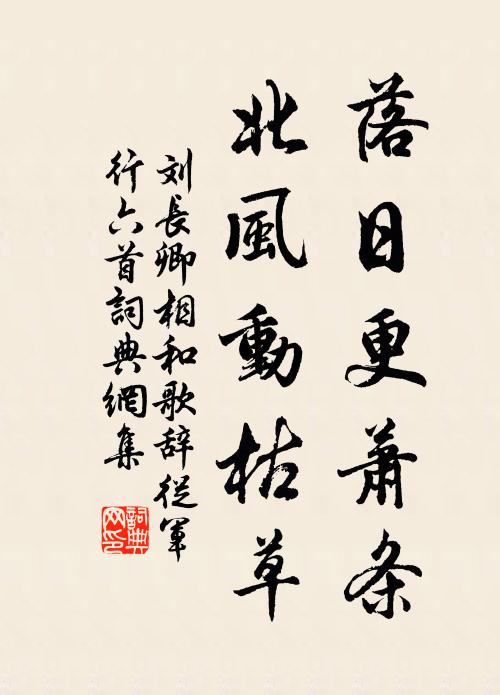 落日更蕭条
北風動枯草
刘長卿相和歌辞從軍
行六首詞典網集
詞典
网印